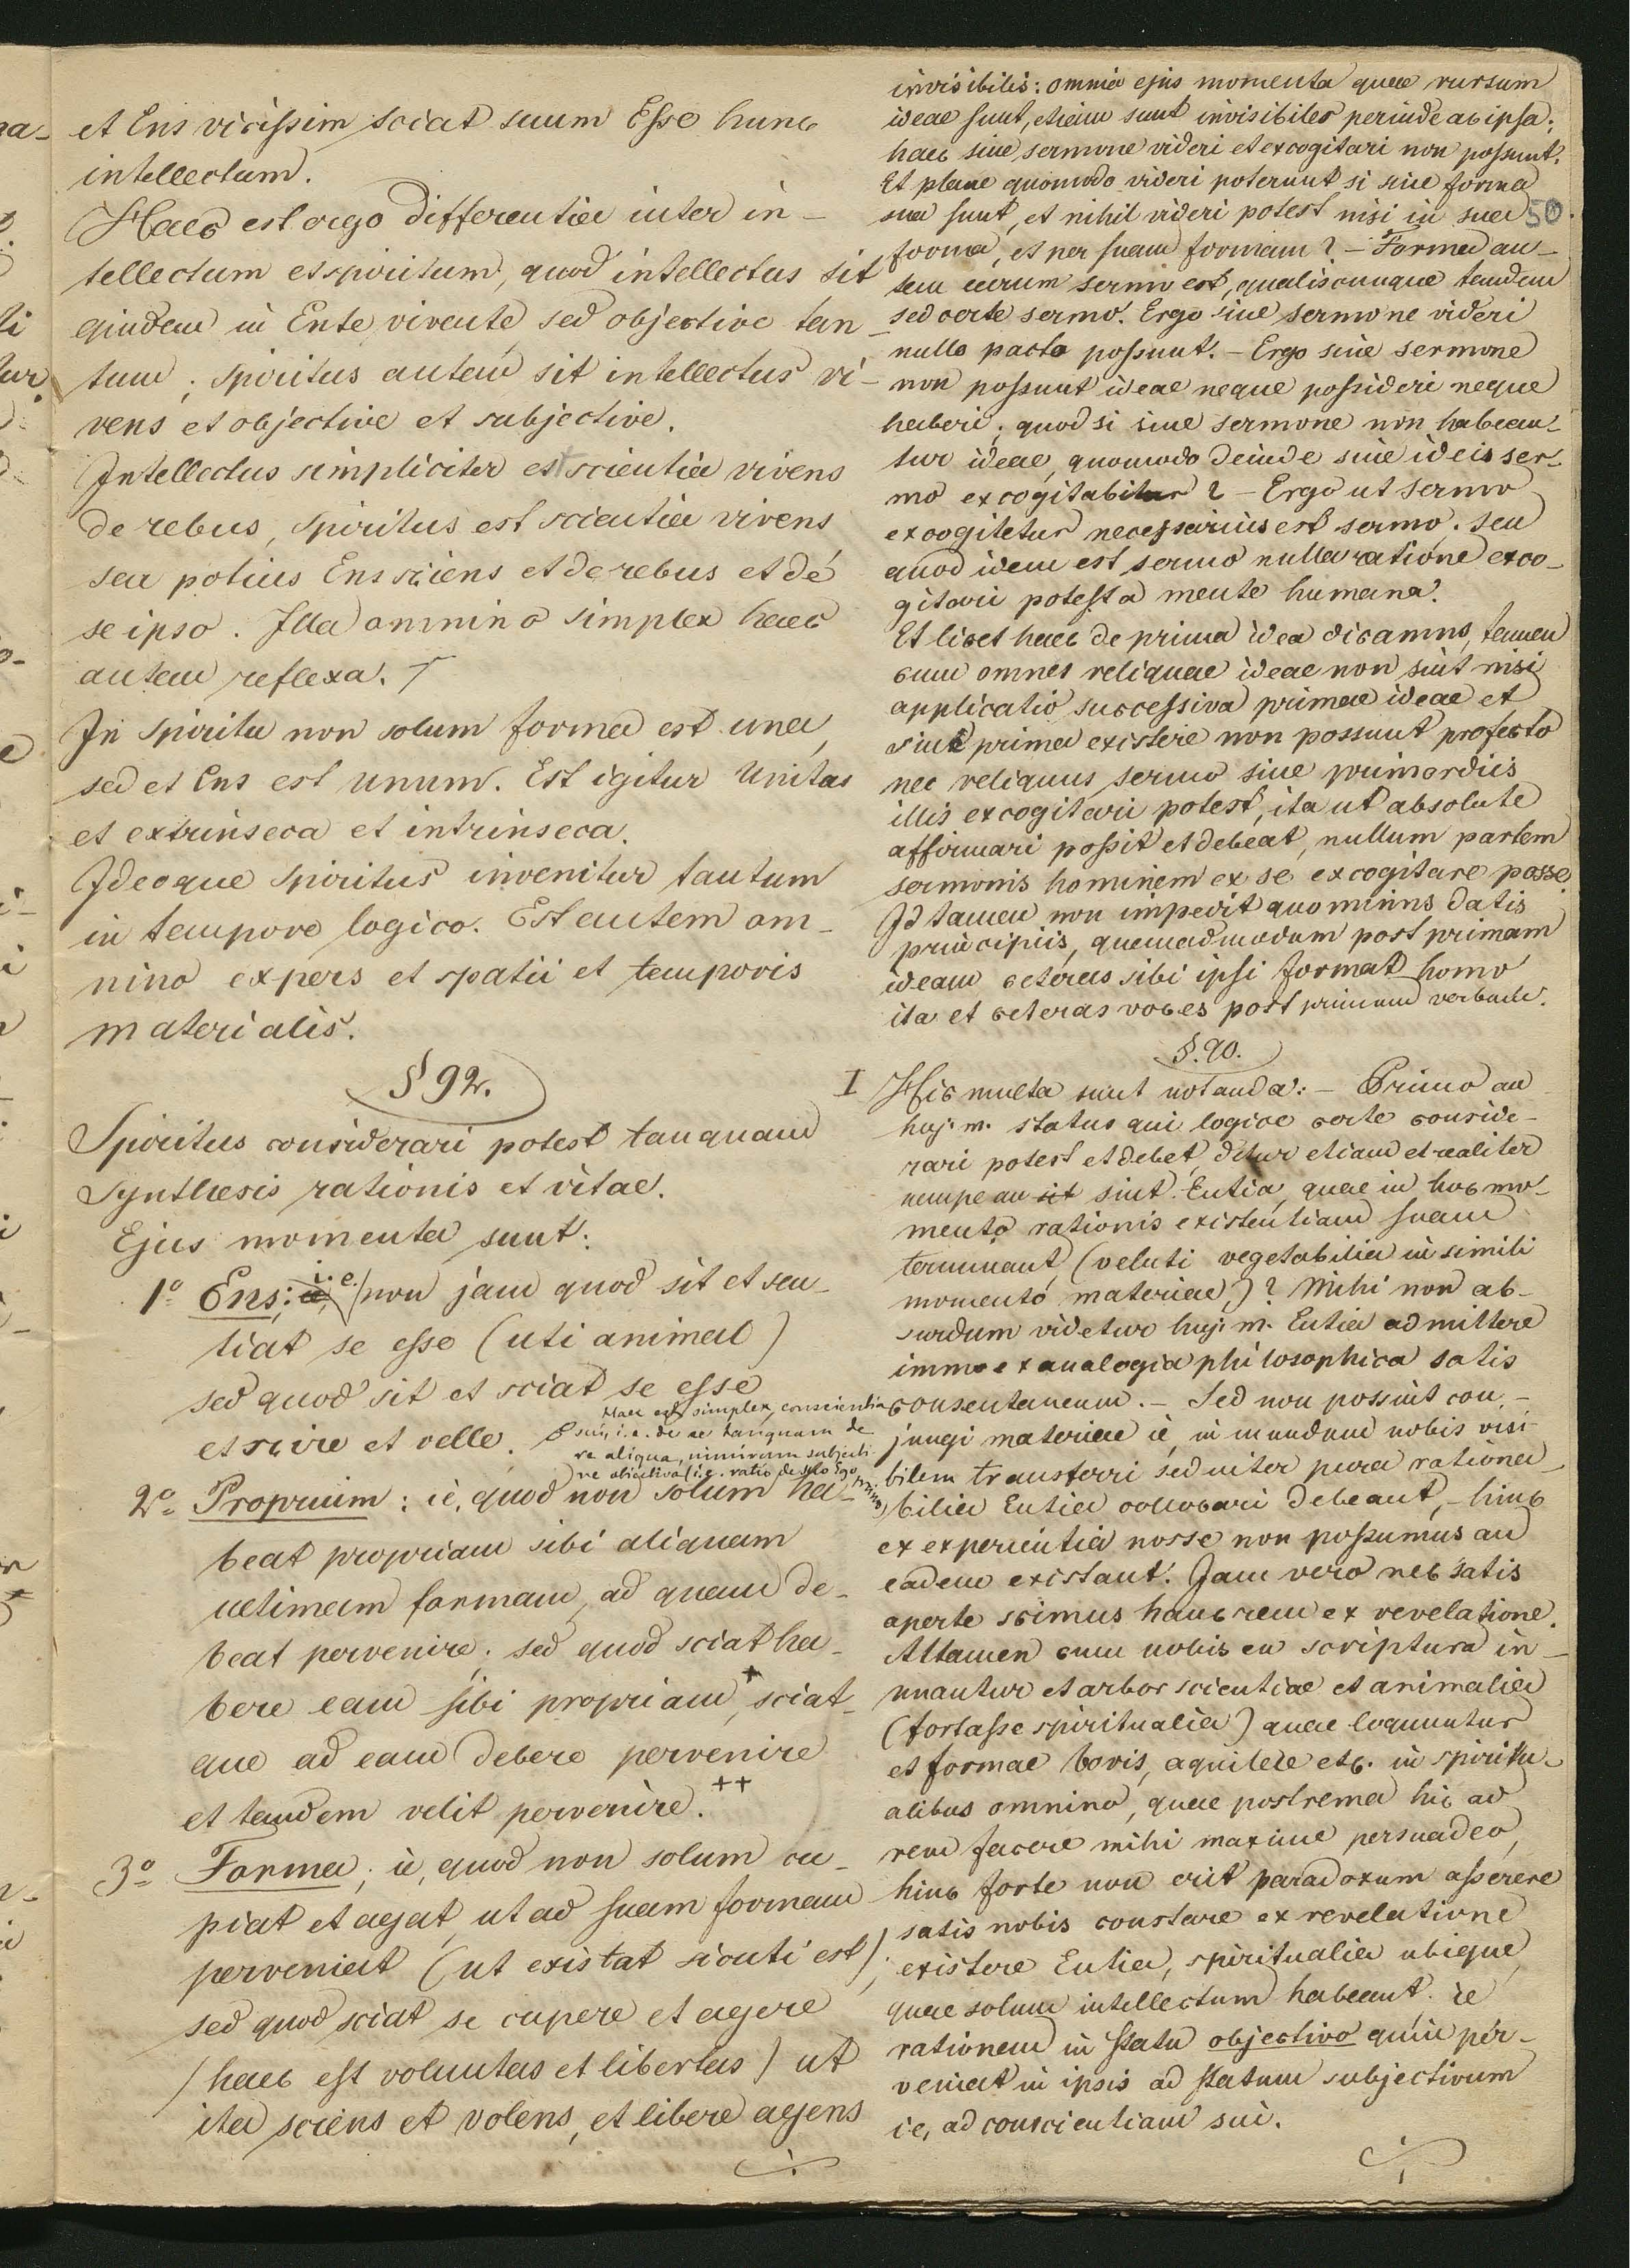 et Ens vicissim sciat suum Esse hunc
intellectum.
Haec est ergo differentia inter in-
tellectum et spiritum, quod intellectus sit
quidem in Ente vivente, sed objective tan
tum; spiritus autem sit intellectus vi-
vens et objective et subjective.
Intellectus simpliciter est scientia vivens
de rebus, spiritus est scientia vivens
seu potius Ens sciens et de rebus et de
se ipso. Illa omnino simplex haec
autem reflexa.
In spiritu non solum forma est una,
sed et Ens est unum. Est igitur Unitas
et extrinseca et intrinseca.
Ideoque spiritus invenitur tantum
in tempore logico. Est autem om-
nino expers et spatii et temporis
materialis.
§ 92.
Spiritus considerari potest tanquam
Synthesis rationis et vitae.
Ejus momenta sunt:
1º Ens; i.e. non jam quod sit et sen-
tiat se esse (uti animal)
sed quod sit et sciat se esse
et scire et velle.
Haec est simplex conscientia
sui, i.e. de se tanquam de
re aliqua, nimirum subjecti-
ve objectiva (i.e. ratio de solo Ego
2º Proprium: ie, quod non solum ha-
beat propriam sibi aliquam
ultimam formam, ad quam de-
beat pervenire; sed quod sciat ha-
bere eam sibi propriam,+ sciat-
que ad eam debere pervenire
et tandem velit pervenire.++
3º Forma; ie, quod non solum cu-
piat et agat, ut ad suam formam
perveniat (ut existat sicuti est);
sed quod sciat se cupere et agere
(haec est voluntas et libertas) ut
ita sciens et volens, et libere agens
invisibilis: omnia ejus momenta quae rursum
ideae sunt, etiam sunt invisibiles perinde ac ipsa;
haec sine sermone videri et excogitari non possunt.
Et plane quomodo videri poterunt si sine forma
sua sunt, et nihil videri potest nisi in sua
50.
forma, et per suam formam? - Forma au-
tem earum sermo est, qualiscunque tandem
sed certe sermo. Ergo sine sermone videri
nullo pacto possunt. - Ergo sine sermone
non possunt ideae neque possideri neque
haberi; quod si sine sermone non habean-
tur ideae, quomodo deinde sine ideis ser-
mo excogitabitur? - Ergo ut sermo
excogitetur necessarius est sermo; seu
quod idem est sermo nulla ratione exco-
gitari potest a mente humana.
Et licet haec de prima idea dicamus, tamen
cum omnes reliquae ideae non sint nisi
applicatio successiva primae ideae et
sine prima existere non possunt profecto
nec reliquus sermo sine primordiis
illis excogitari potest, ita ut absolute
affirmari possit et debeat, nullum partem
sermonis hominem ex se excogitare posse
Id tamen non impedit quominus datis
principiis, quemadmodum post primam
ideam ceteras sibi ipsi format homo
ita et ceteras voces post primum verbum.
§. 90.
I Hic multa sunt notanda: - Primo an
huj. m. status qui logice certe conside-
rari potest et debet, detur etiam et realiter
nempe an sit sint Entia, quae in hoc mo-
mento rationis existentiam suam
terminant, (veluti vegetabilia in simili
momento materiae)? Mihi non ab-
surdum videtur huj. m. Entia admittere
immo ex analogia philosophica satis
consentaneum. - Sed non possint con-
jungi materiae ie, in mundum nobis visi
bilem transferri sed inter pura rationa-
bilia Entia collocari debeant, - hinc
ex experientia nosse non possumus an
eadem existant. Jam vero nec satis
aperte scimus hanc rem ex revelatione.
Attamen cum nobis en scriptura in-
nuantur et arbor scientiae et animalia
(fortasse spiritualia) quae loquuntur
et formae bovis, aquilae etc. in spiritu-
alibus omnino, quae postrema hic ad
rem facere mihi maxime persuadeo,
hinc forte non erit paradoxum asserere
satis nobis constare ex revelatione
existere Entia, spiritualia ubique,
quae solum intellectum habeant. ie
rationem in statu objectivo quin per-
veniat in ipsis ad statum subjectivum
ie, ad conscientiam sui.